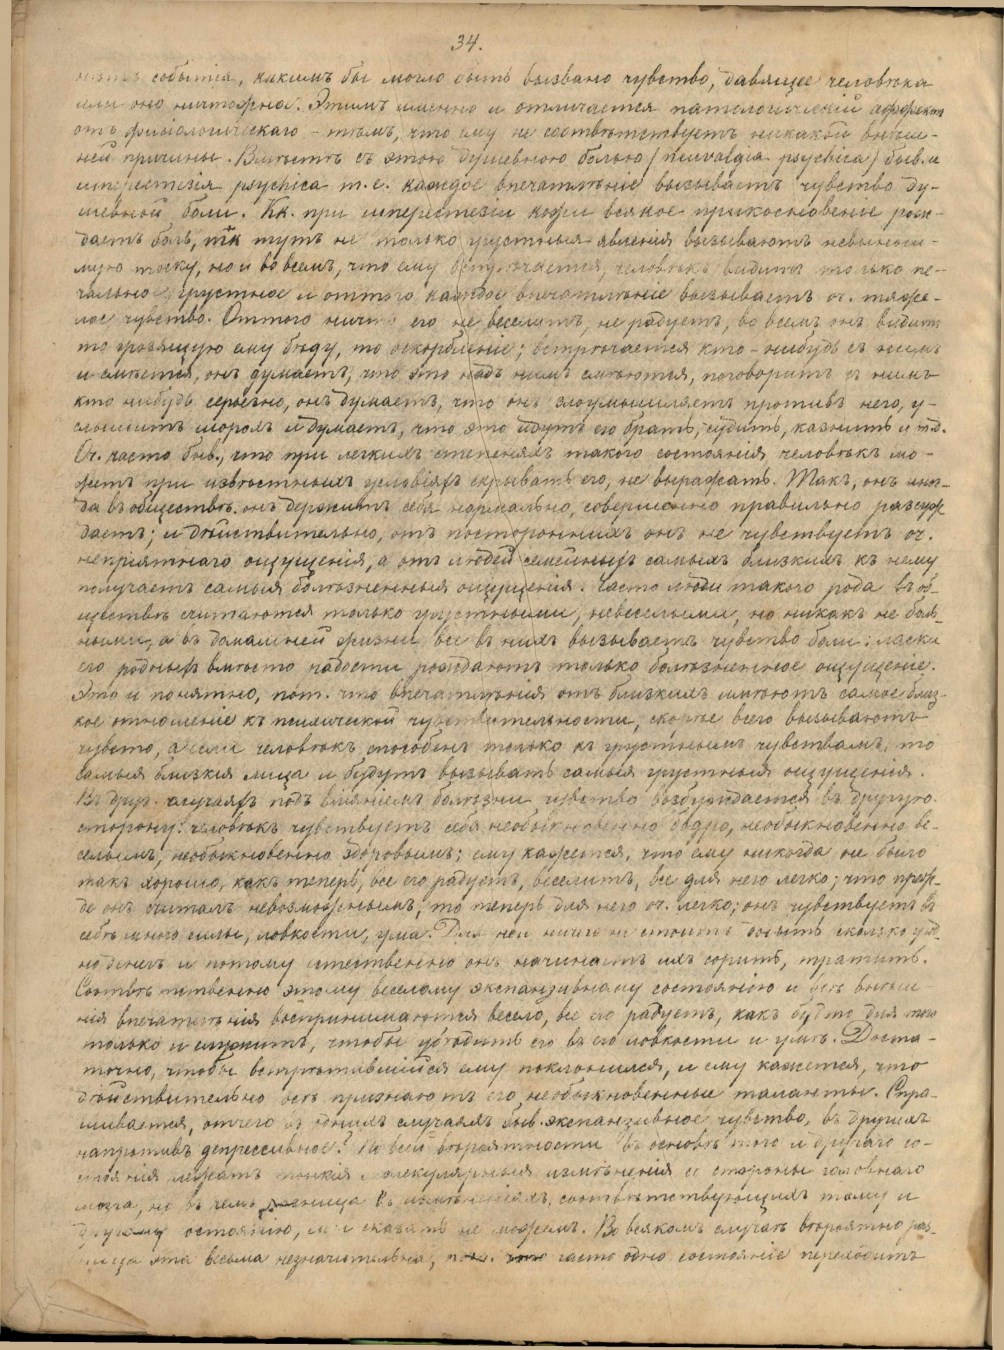 34.
событія, какимъ бы могло быть вызвано чувство, давящее человѣка
или оно ничтожно. Этимъ именно и отличается патологическій аффектъ
отъ физіологическаго – тѣмъ, что ему не соотвѣтствуетъ никакой внѣш-
ней причины. Вмѣстѣ съ этою душевною болью (neuralgia psychica) быв. и
гиперестезія psychica т. е. каждое впечатлѣніе вызываетъ чувство ду-
шевной боли. Кк. при гиперестезіи кожи всякое прикосновеніе рож-
даетъ боль, тк тутъ не только грустныя явленія вызываютъ невыноси-
мую тоску, но и во всемъ, что ему встрѣчается, человѣкъ видитъ только пе-
чальное, грустное и оттого каждое впечатлѣніе вызываетъ оч. тяже-
лое чувство. Оттого ничто его не веселитъ, не радуетъ, во всемъ онъ видитъ
то грозящую ему бѣду, то оскорбленіе; встрѣчается кто-нибудь съ нимъ
и смѣется, онъ думаетъ, что это надъ нимъ смѣются, поговоритъ съ нимъ
кто нибудь серьезно, онъ думаетъ, что онъ злоумышляетъ противъ него, у-
слышитъ шорохъ и думаетъ, что это идутъ его брать, судить, казнить и т.д.
Оч. часто быв., что при легкихъ степеняхъ такого состоянія человѣкъ мо-
жетъ при извѣстныхъ условіяхъ скрывать его, не выражать. Такъ, онъ иног-
да въ обществѣ онъ держитъ себя нормально, совершенно правильно разсуж-
даетъ; и дѣйствительно, отъ постороннихъ онъ не чувствуетъ оч.
непріятнаго ощущенія, а отъ людей семейныхъ самыхъ близкихъ къ нему
получаетъ самыя болѣзненныя ощущенія. Часто люди такого рода въ об-
ществѣ считаются только грустными, невеселыми, но никакъ не боль-
ными, а въ домашней жизни все въ нихъ вызываетъ чувство боли: ласки
его родныхъ вмѣсто радости рождаютъ только болѣзненное ощущеніе.
Это и понятно, пот. что впечатлѣнія отъ близкихъ имѣютъ самое близ-
кое отношеніе къ психической чувствительности, скорѣе всего вызываютъ
чувство, а если человѣкъ способенъ только къ грустнымъ чувствамъ, то
самыя близкія лица и будутъ вызывать самыя грустныя ощущенія.
Въ друг. случаяхъ подъ вліяніемъ болѣзни чувство возбуждается въ другую
сторону: человѣкъ чувствуетъ себя необыкновенно бодро, необыкновенно ве-
селымъ, необыкновенно здоровымъ; ему кажется, что ему никогда не было
такъ хорошо, какъ теперь, все его радуетъ, веселитъ, все для него легко; что преж-
де онъ считалъ невозможнымъ, то теперь для него оч. легко; онъ чувствуетъ въ
себѣ много силы, ловкости, ума. Для него ничего не стоитъ добыть сколько угод-
но денегъ и потому естественно онъ начинаетъ ихъ сорить, тратить.
Соотвѣтственно этому веселому экспанзивному состоянію и всѣ внѣш-
нія впечатлѣнія воспринимаются весело, все его радуетъ, какъ будто для того
только и служитъ, чтобы убѣдить его въ его ловкости и умѣ. Доста-
точно, чтобы встрѣтившійся ему поклонился, и ему кажется, что
дѣйствительно всѣ признаютъ его необыкновенные таланты. Спра-
шивается, отчего въ однихъ случаяхъ быв. экспанзивное чувство, въ другихъ
напротивъ депрессивное? По всей вѣроятности въ основѣ того и другаго со-
стоянія лежатъ тонкія молекулярныя измѣненія со стороны головнаго
мозга, но въ чемъ разница въ измѣненіяхъ, соотвѣтствующихъ тому и
другому состоянію, мы сказать не можемъ. Во всякомъ случаѣ вѣроятно раз-
ница эта весьма незначительна, часто одно состояніе переходитъ